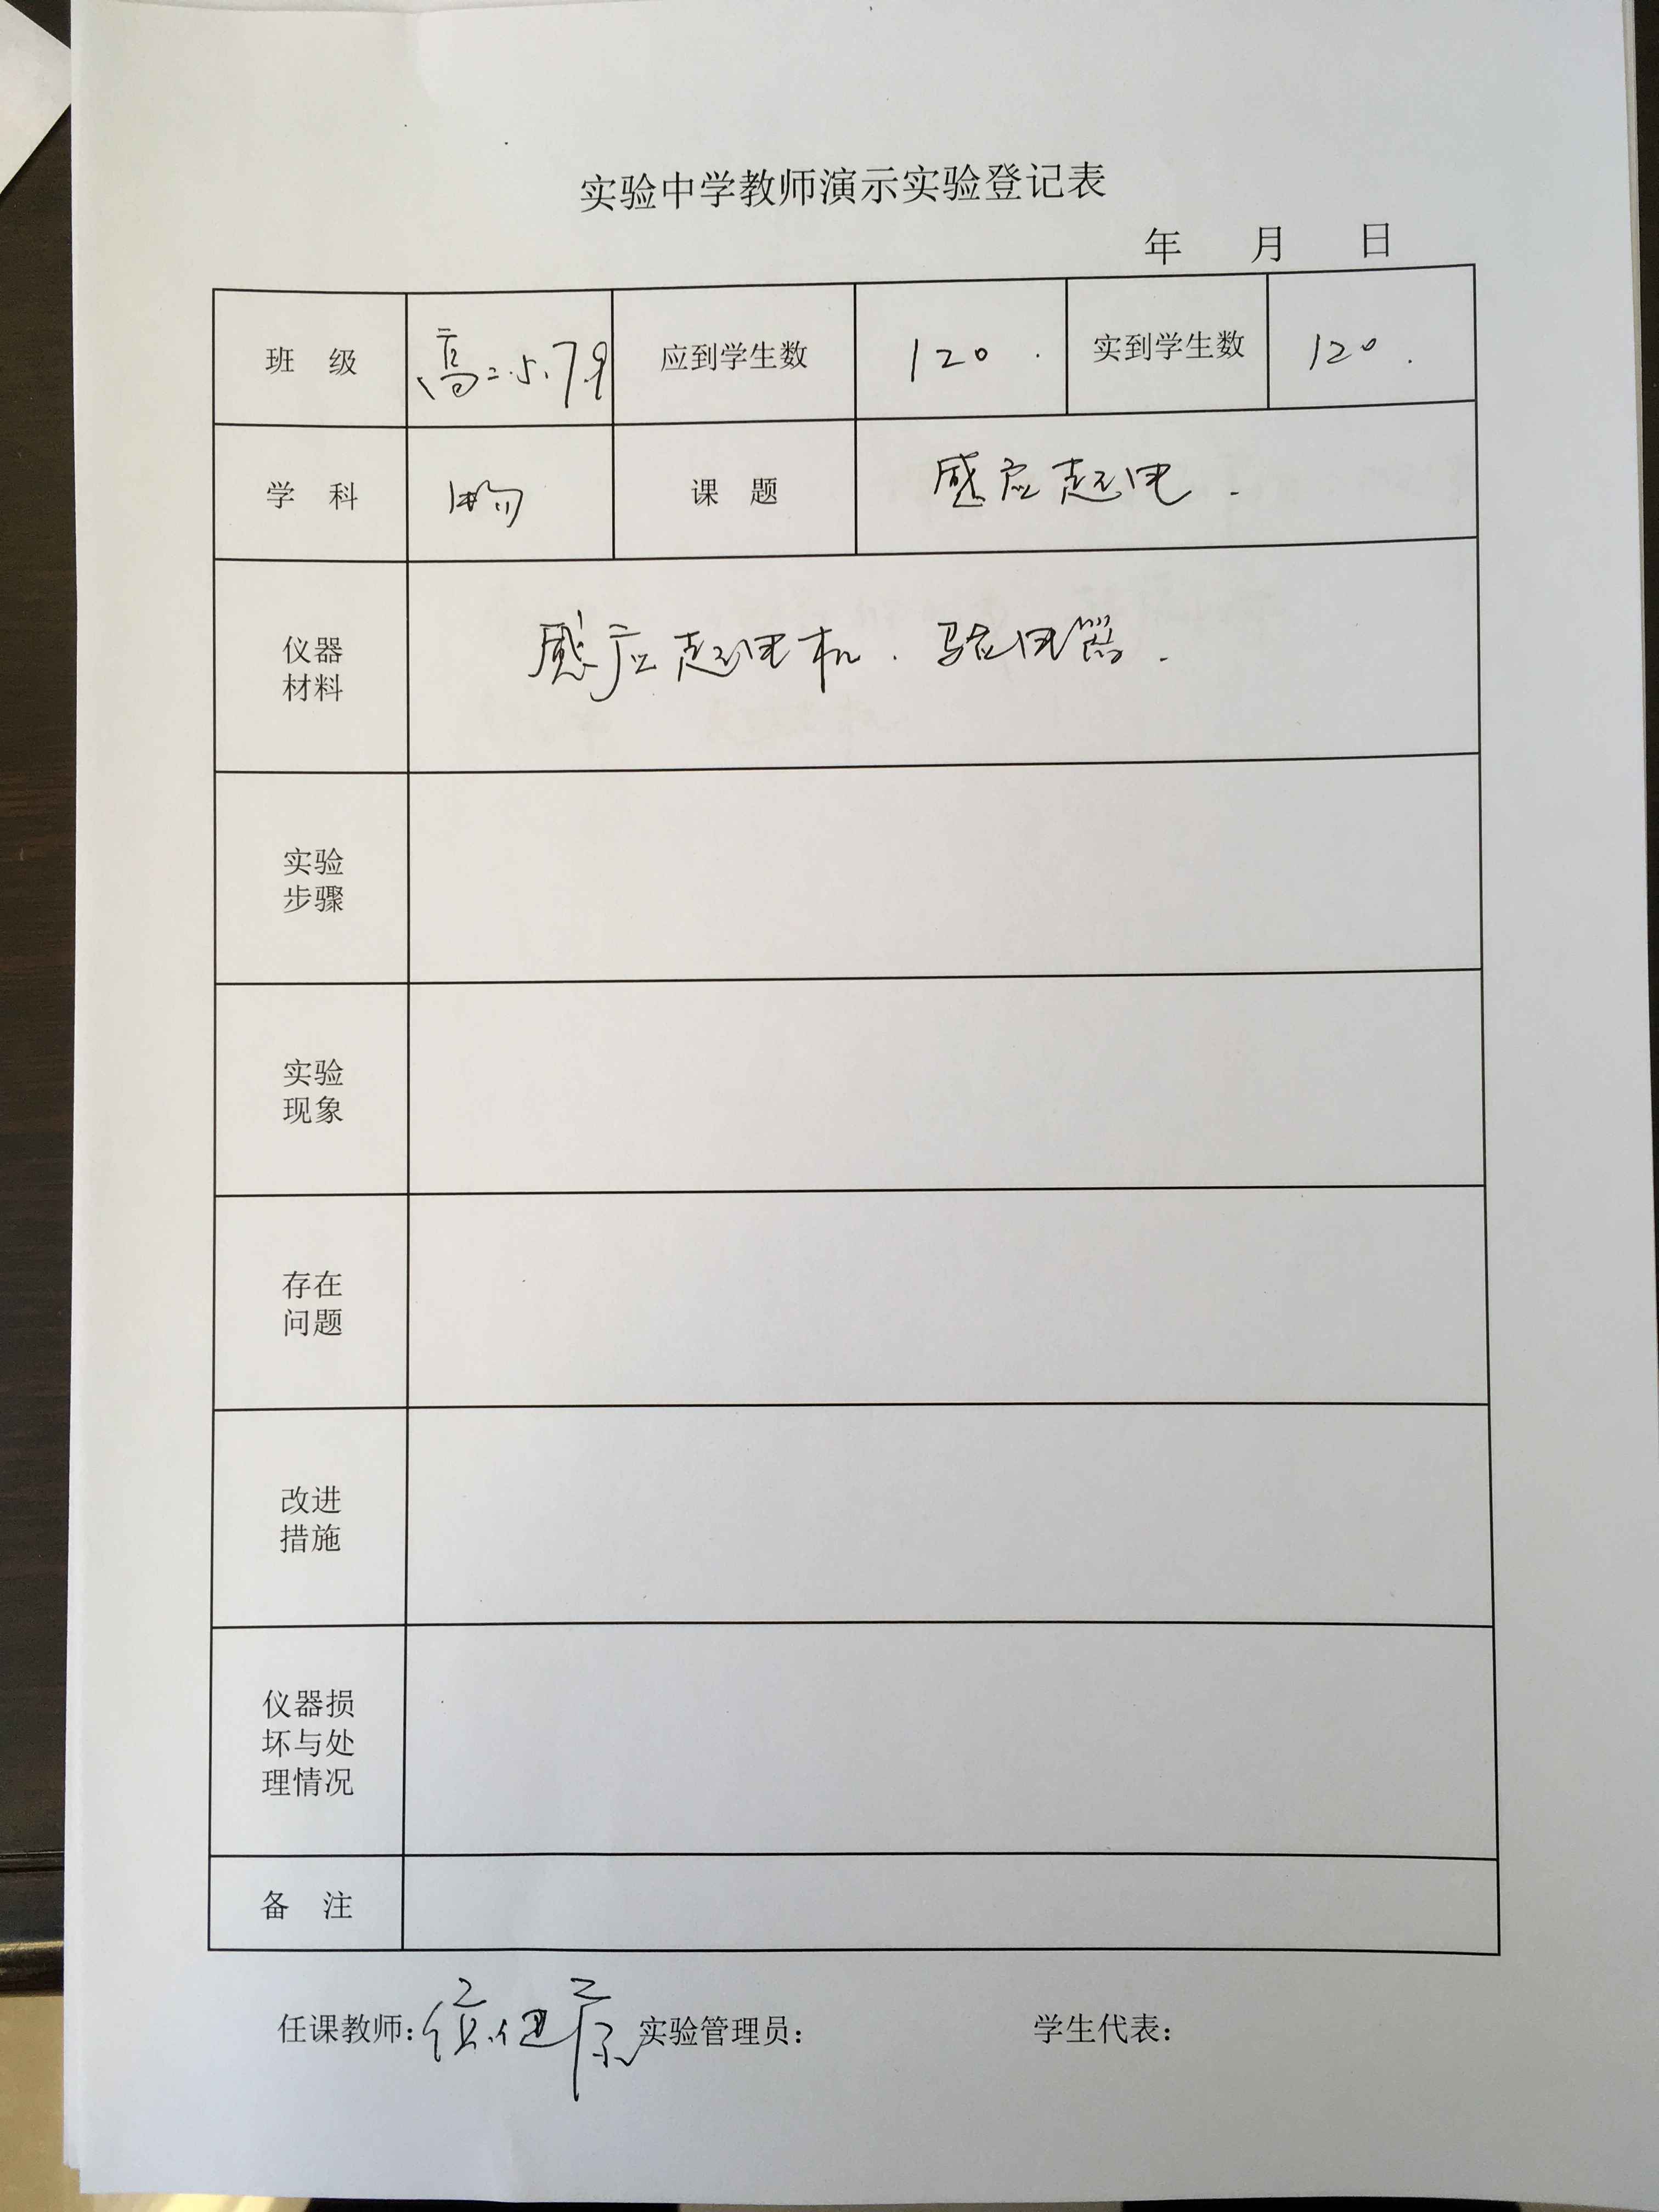 实验中学教师演示实验登记表
年 月 日
班 级 高二.5.7.9 应到学生数 120. 实到学生数 120.
学 科 物 课 题 感应起电.
仪器
材料
感应起电机.验电器.
实验
步骤
实验
现象
存在
问题
改进
措施
仪器损
坏与处
理情况
备 注
任课教师: 实验管理员: 学生代表: